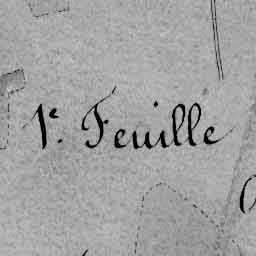 1e. Feuille